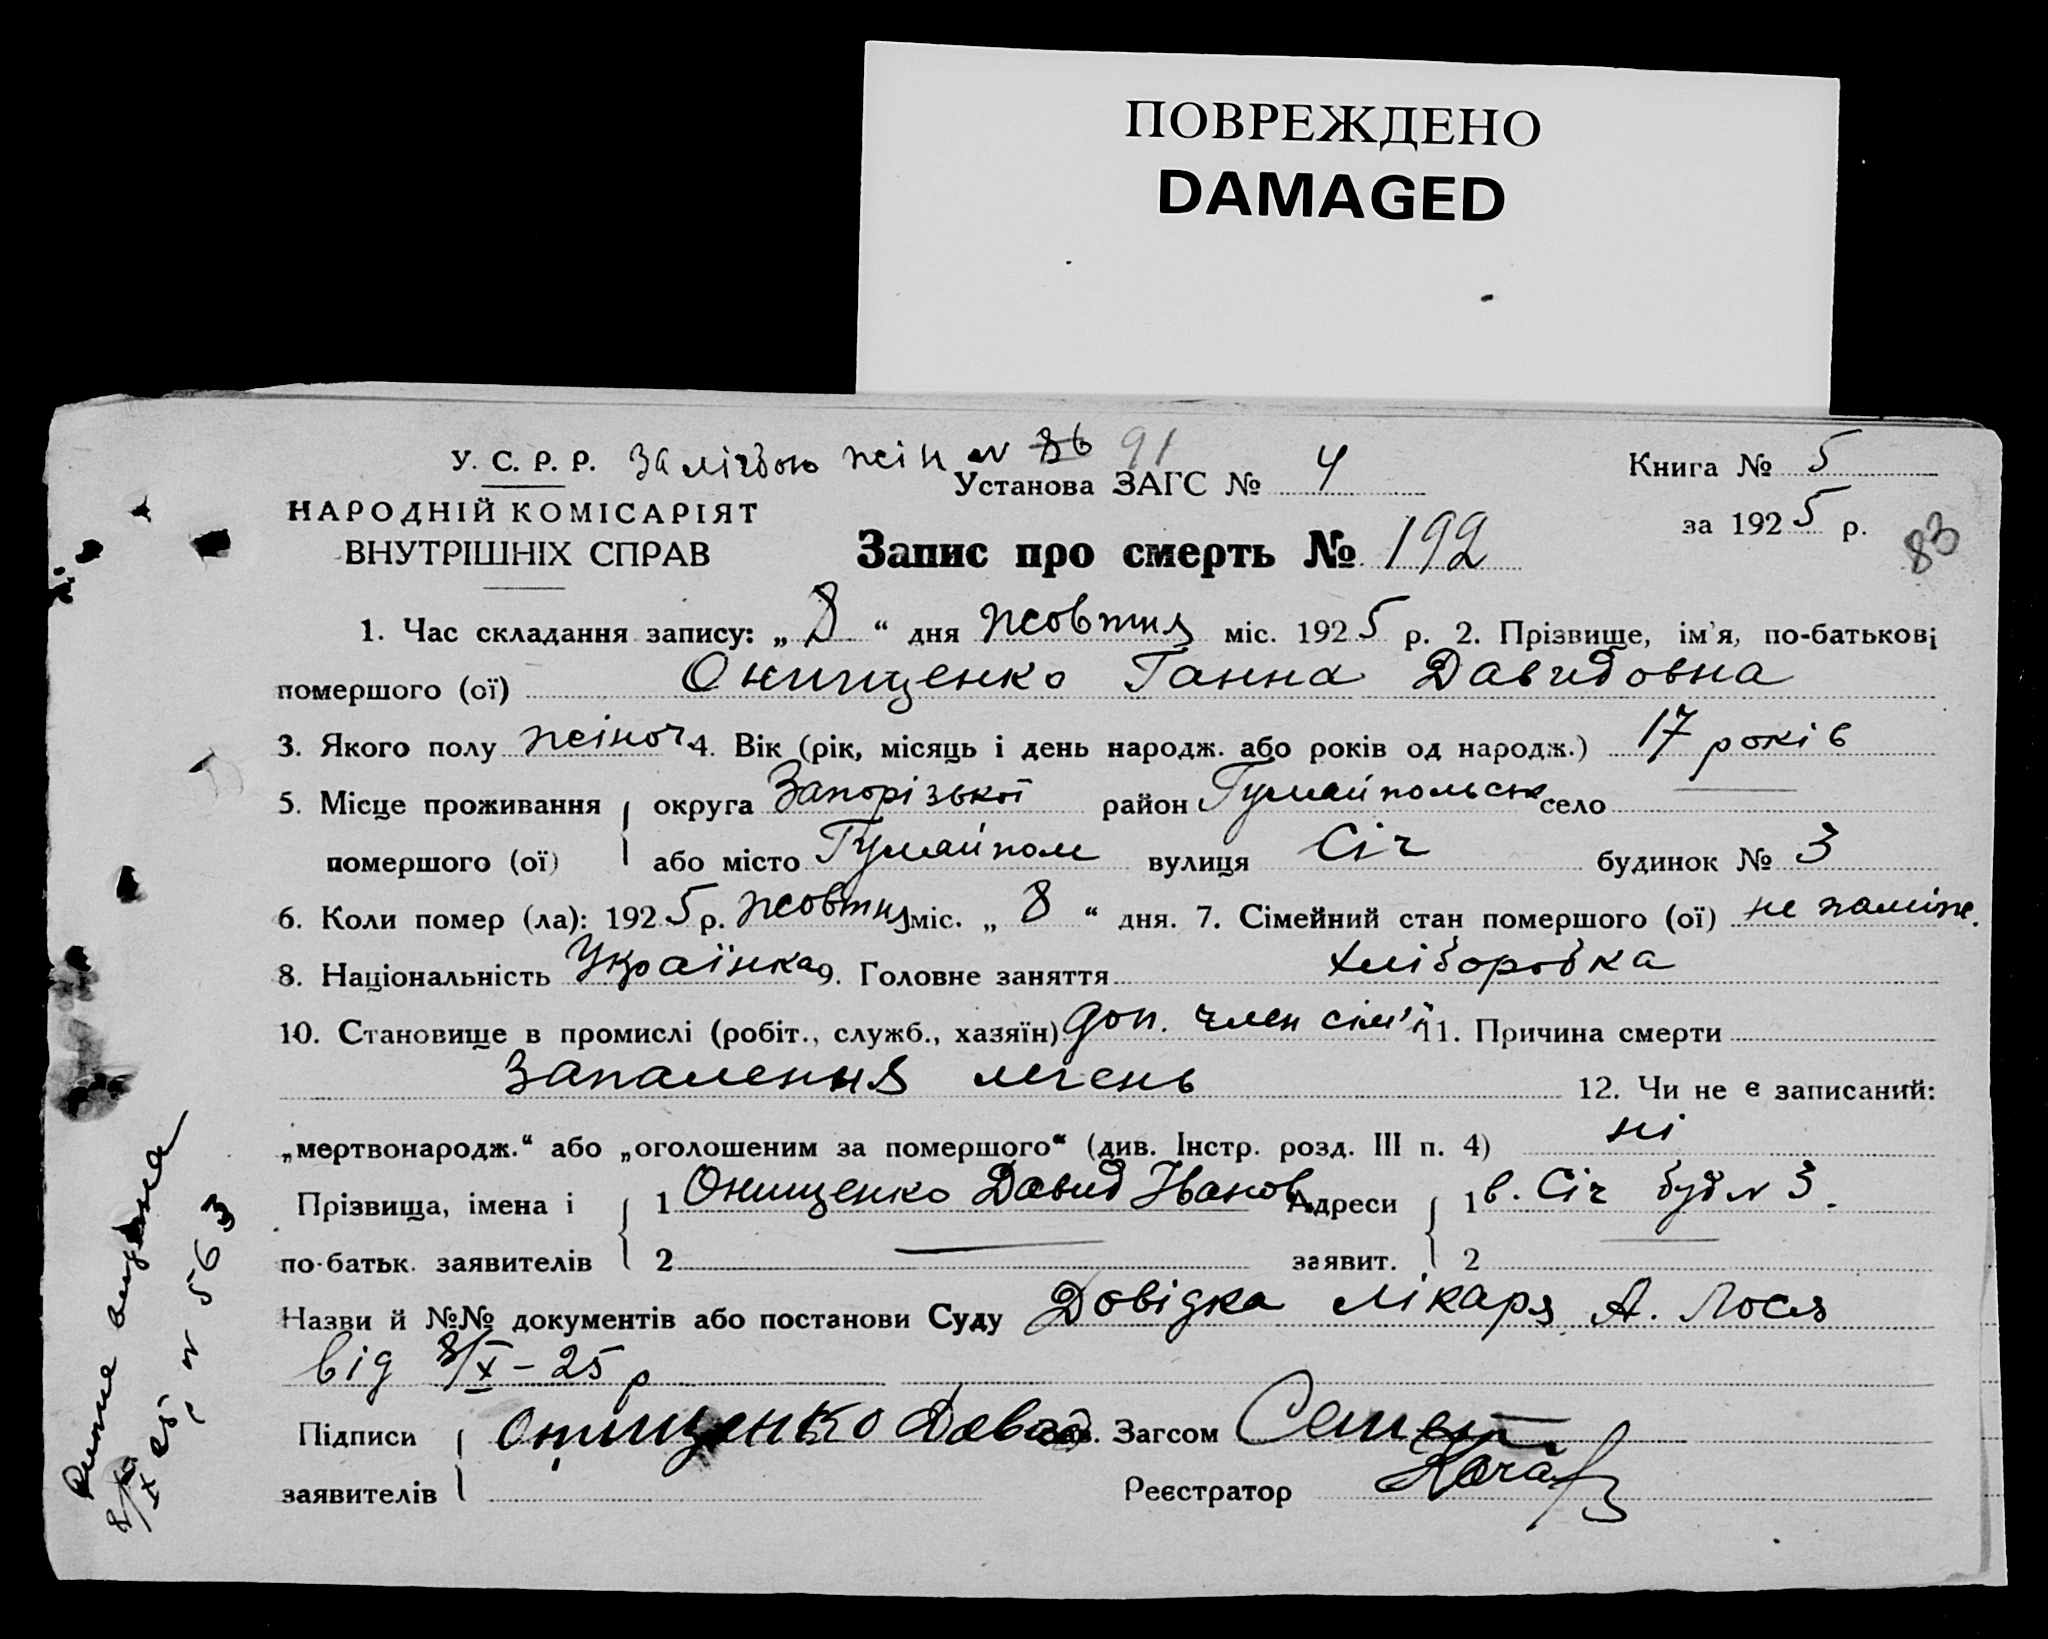 ПОВРЕЖДЕНО
DAMAGED
У. С. Р. Р. За лічбою жін № 86 91
Установа ЗАГС № 4
Книга № 5
за 1925 р.
83
НАРОДНІЙ КОМІСАРІЯТ
ВНУТРІШНІХ СПРАВ
Запис про смерть № 192
1. Час складання запису: „ 8 “ дня жовтня міс. 1925 р. 2. Прізвище, ім'я, по-батькові
помершого (ої) Онищенко Ганна Давидовна
3. Якого полу жіноч. 4. Вік (рік, місяць і день народж. або років од народж.) 17 років
5. Місце проживання округа Запорізької район Гуляйпольськ село —
помершого (ої) або місто Гуляйполе вулиця Січ будинок № 3
6. Коли помер (ла): 1925 р. жовтня міс. „ 8 “ дня. 7. Сімейний стан помершого (ої) не заміж.
8. Національність Українка 9. Головне заняття хліборобка
10. Становище в промислі (робіт., служб., хазяїн) доп. член сім'ї 11. Причина смерти
Запалення легень 12. Чи не є записаний:
„мертвонародж.“ або „оголошеним за помершого“ (див. Інстр. розд. III п. 4) ні
Прізвища, імена і 1 Онищенко Давид Іванов. Адреси 1 в. Січ буд № 3.
по-батьк. заявителів 2 — заявит. 2 —
Назви й №№ документів або постанови Суду Довідка лікаря А. Лося
від 8/X – 25 р
Підписи Онищенко Давид Зав. Загсом
заявителів Реєстратор
8/X 25 № 563